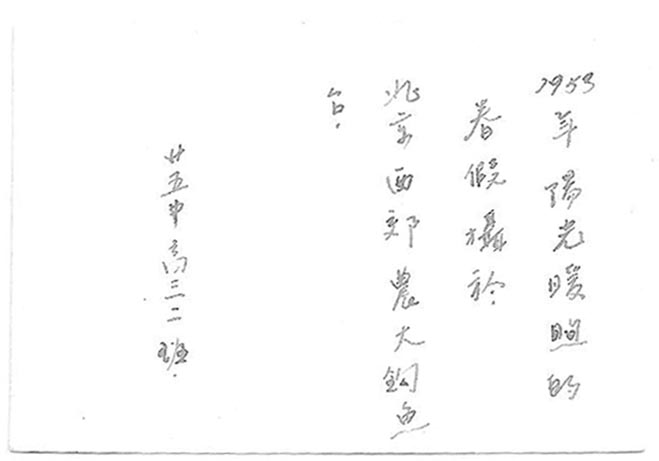 1953年陽光暖照的
春假攝於
北京西郊農大钓魚
台.
廿五中高三二班.